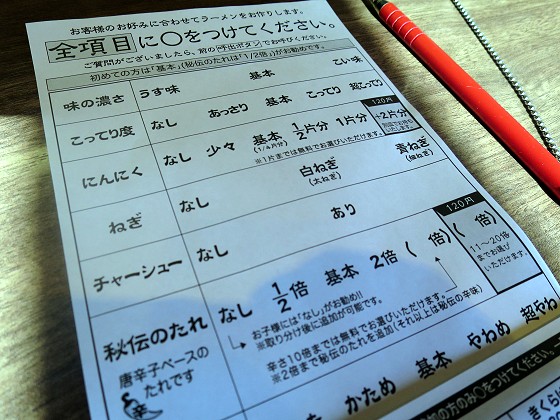 お客様のお好みに合わせてラーメンをお作りします。
全項目に○をつけてください。
ご質問がございましたら、前の呼出ボタンでお呼びください。
初めての方は「基本」(秘伝のたれは「1/2倍」)がお勧めです。
味の濃さ うす味 基本 こい味
こってり度 なし あっさり 基本 こってり 超こってり
120円
にんにく なし 少々 基本 1/2片分 1片分 +2片分
(1/4片分)
※1片までは無料でお選びいただけます。
ねぎ なし 白ねぎ 青ねぎ
(太ねぎ) (細ねぎ)
チャーシュー なし あり
120円
秘伝のたれ なし 1/2倍 基本 2倍 ( 倍) ( 倍)
唐辛子ベースの
たれです
辛
11〜20倍
までお選び
いただけます。
お子様には「なし」がお勧め!!
※取り分け後に追加が可能です。
辛さ10倍までは無料でお選びいただけます。
※2倍まで秘伝のたれを追加(それ以上は秘伝の辛味)
かため 基本 やわめ 超やわめ
の方のみ○をつけてください